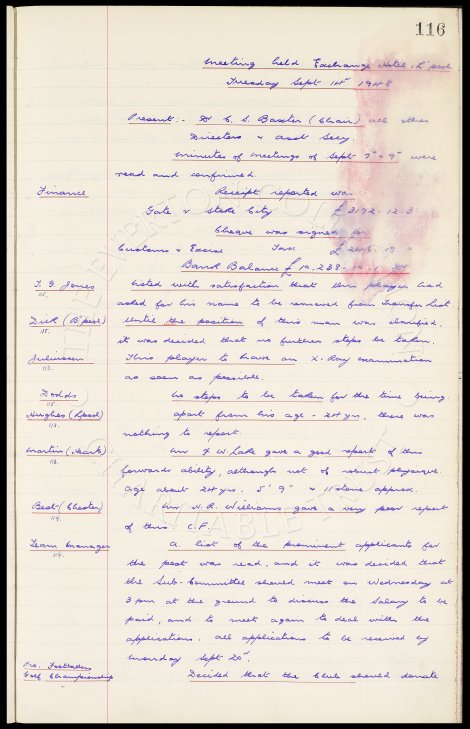 116
Meeting held Exchange Hotel, L'pool
Tuesday Sept 14th 1948
Present:- Dr C. S. Baxter (Chair) all other
Directors & asst Secy.
Minutes of meetings of Sept 7th & 9th were
read and confirmed.
Finance
Receipt reported was
Gate v Stoke City £3192. 12. 3
Cheque was signed for
Customs & Excise Tax £
Bank Balance £19,238
T. G. Jones
115.
Noted with satisfaction that this player had
asked for his name to be removed from Transfer List.
Dick (B'pool)
115.
Until the position of this man was clarified,
it was decided that no further steps be taken.
Juliussen
113.
This player to have an X-Ray examination
as soon as possible.
Dodds
115.
No steps to be taken for the time being.
Hughes (L'pool)
113.
Apart from his age - 24 yrs, there was
nothing to report.
Martin (Hearts)
113.
Mr F. W. Lake gave a good report of this
forwards ability, although not of robust physique.
Age about 24 yrs. 5' 9" & 11 stone approx.
Best (Chester)
114.
Mr H. R. Williams gave a very poor report
of this C.F.
Team Manager
114.
A list of the prominent applicants for
the post was read, and it was decided that
the Sub-Committee should meet on Wednesday at
3 pm at the ground to discuss the Salary to be
paid, and to meet again to deal with the
applications. All applications to be received by
Monday Sept 20th.
Pro. Footballers
Golf Championship
Decided that the Club should donate